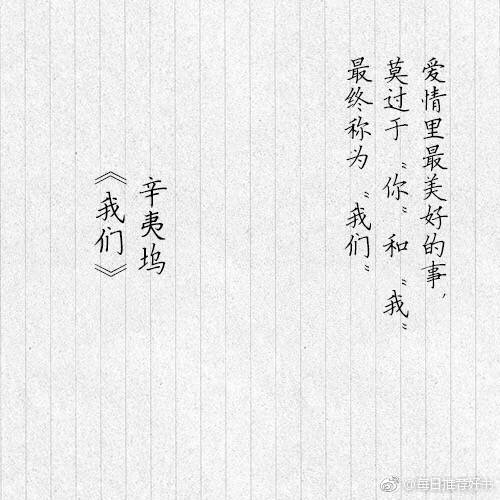 爱情里最美好的事，
莫过于“你”和“我”
最终称为“我们”
辛夷坞
《我们》
@每日推荐好书